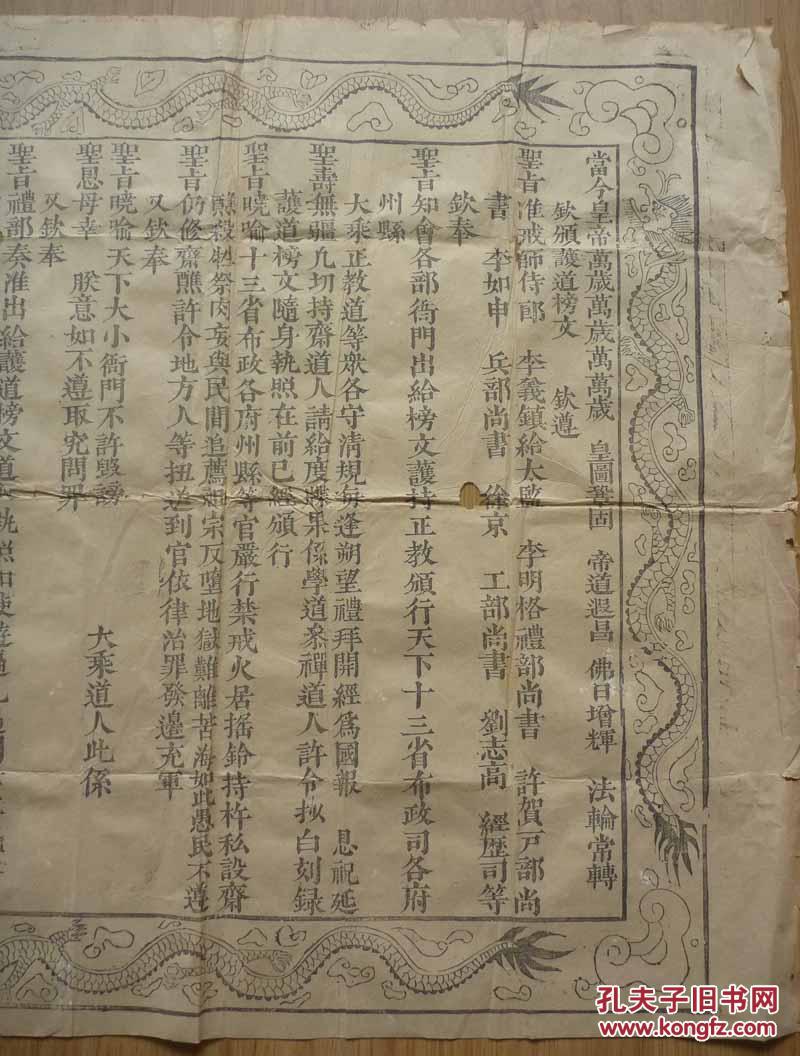 當今皇帝萬歲萬歲萬萬歲 皇圖鞏固 帝道遐昌 佛日增輝 法輪常轉
欽頒護道榜文 欽遵
聖旨准戒師侍郎 李義鎮給太監 李明格禮部尚書 許賀戸部尚
書 李如申 兵部尚書 徐京 工部尚書 劉志高 經歷司等
欽奉
聖旨知會各部衙門出給榜文護持正教頒行天下十三省布政司各府
州縣
大乘正教道等眾各守清規每逢朔望禮拜開經爲國報 恩祝延
聖壽無疆凡切持齋道人請給度牒果係學道叅禪道人許令抄白刻録
護道榜文隨身執照在前已經頒行
聖旨曉喻十三省布政各府州縣等官嚴行禁戒火居搖鈴持杵私設齋
醮殺牲祭肉妄與民間追薦祖宗反墮地獄難離苦海如此愚民不遵
聖旨仍修齋醮許令地方人等扭送到官依律治罪發邊充軍
又欽奉
聖旨曉喻天下大小衙門不許毀謗 大乘道人此係
聖恩母幸 朕意如不遵取究問罪
又欽奉
聖旨禮部奏准出給護道榜文道 執照
孔夫子旧书网
www.kongfz.com